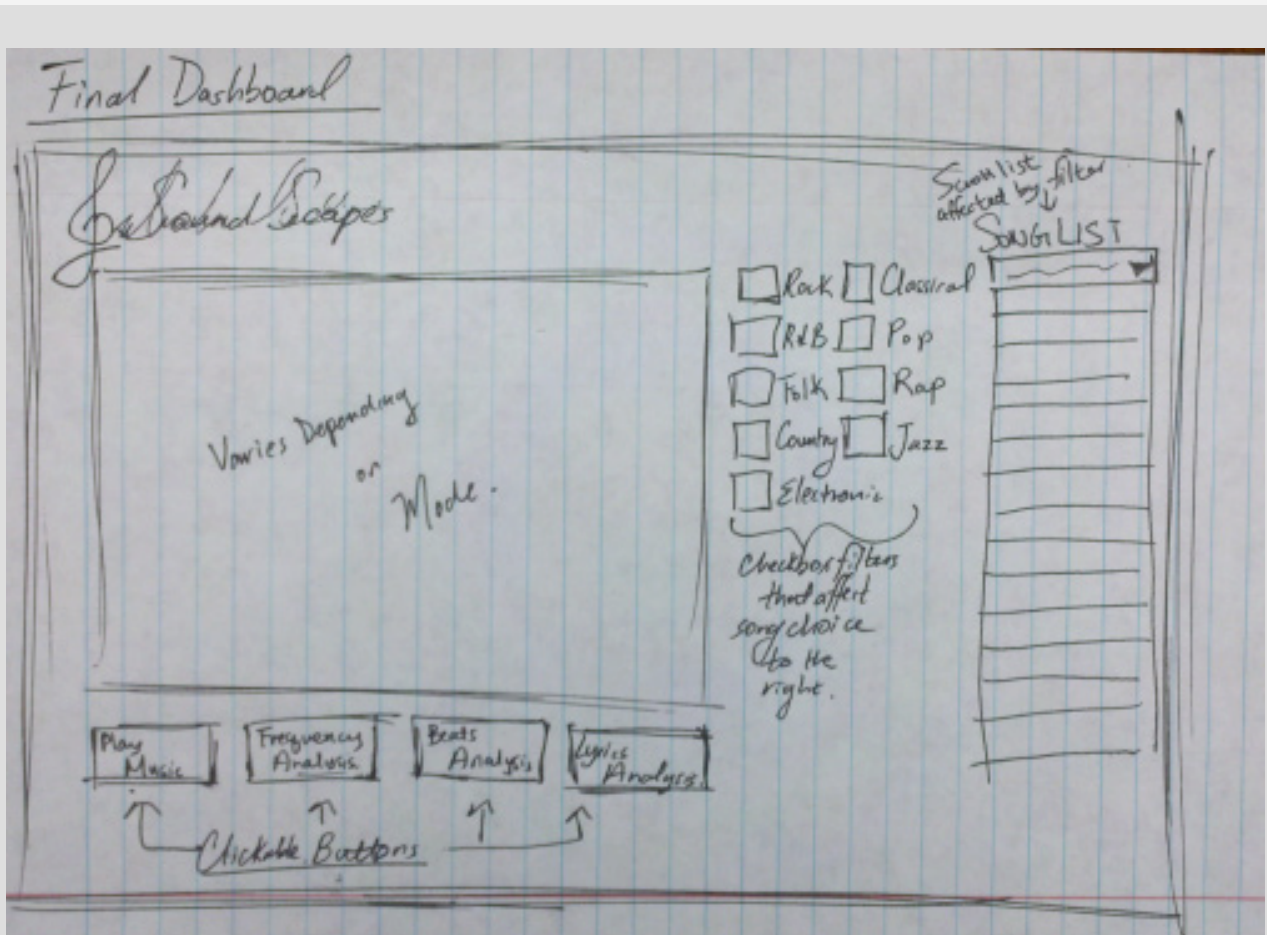 Final Dashboard
SoundScapes
Scroll list
affected by filter
SONG LIST
Rock
Classical
R&B
Pop
Folk
Rap
Country
Jazz
Electronic
Varies Depending
on
Mode.
Checkbox filters
that affect
song choice
to the
right.
Play
Music
Frequency
Analysis.
Beats
Analysis
Lyrics
Analysis.
Clickable Buttons